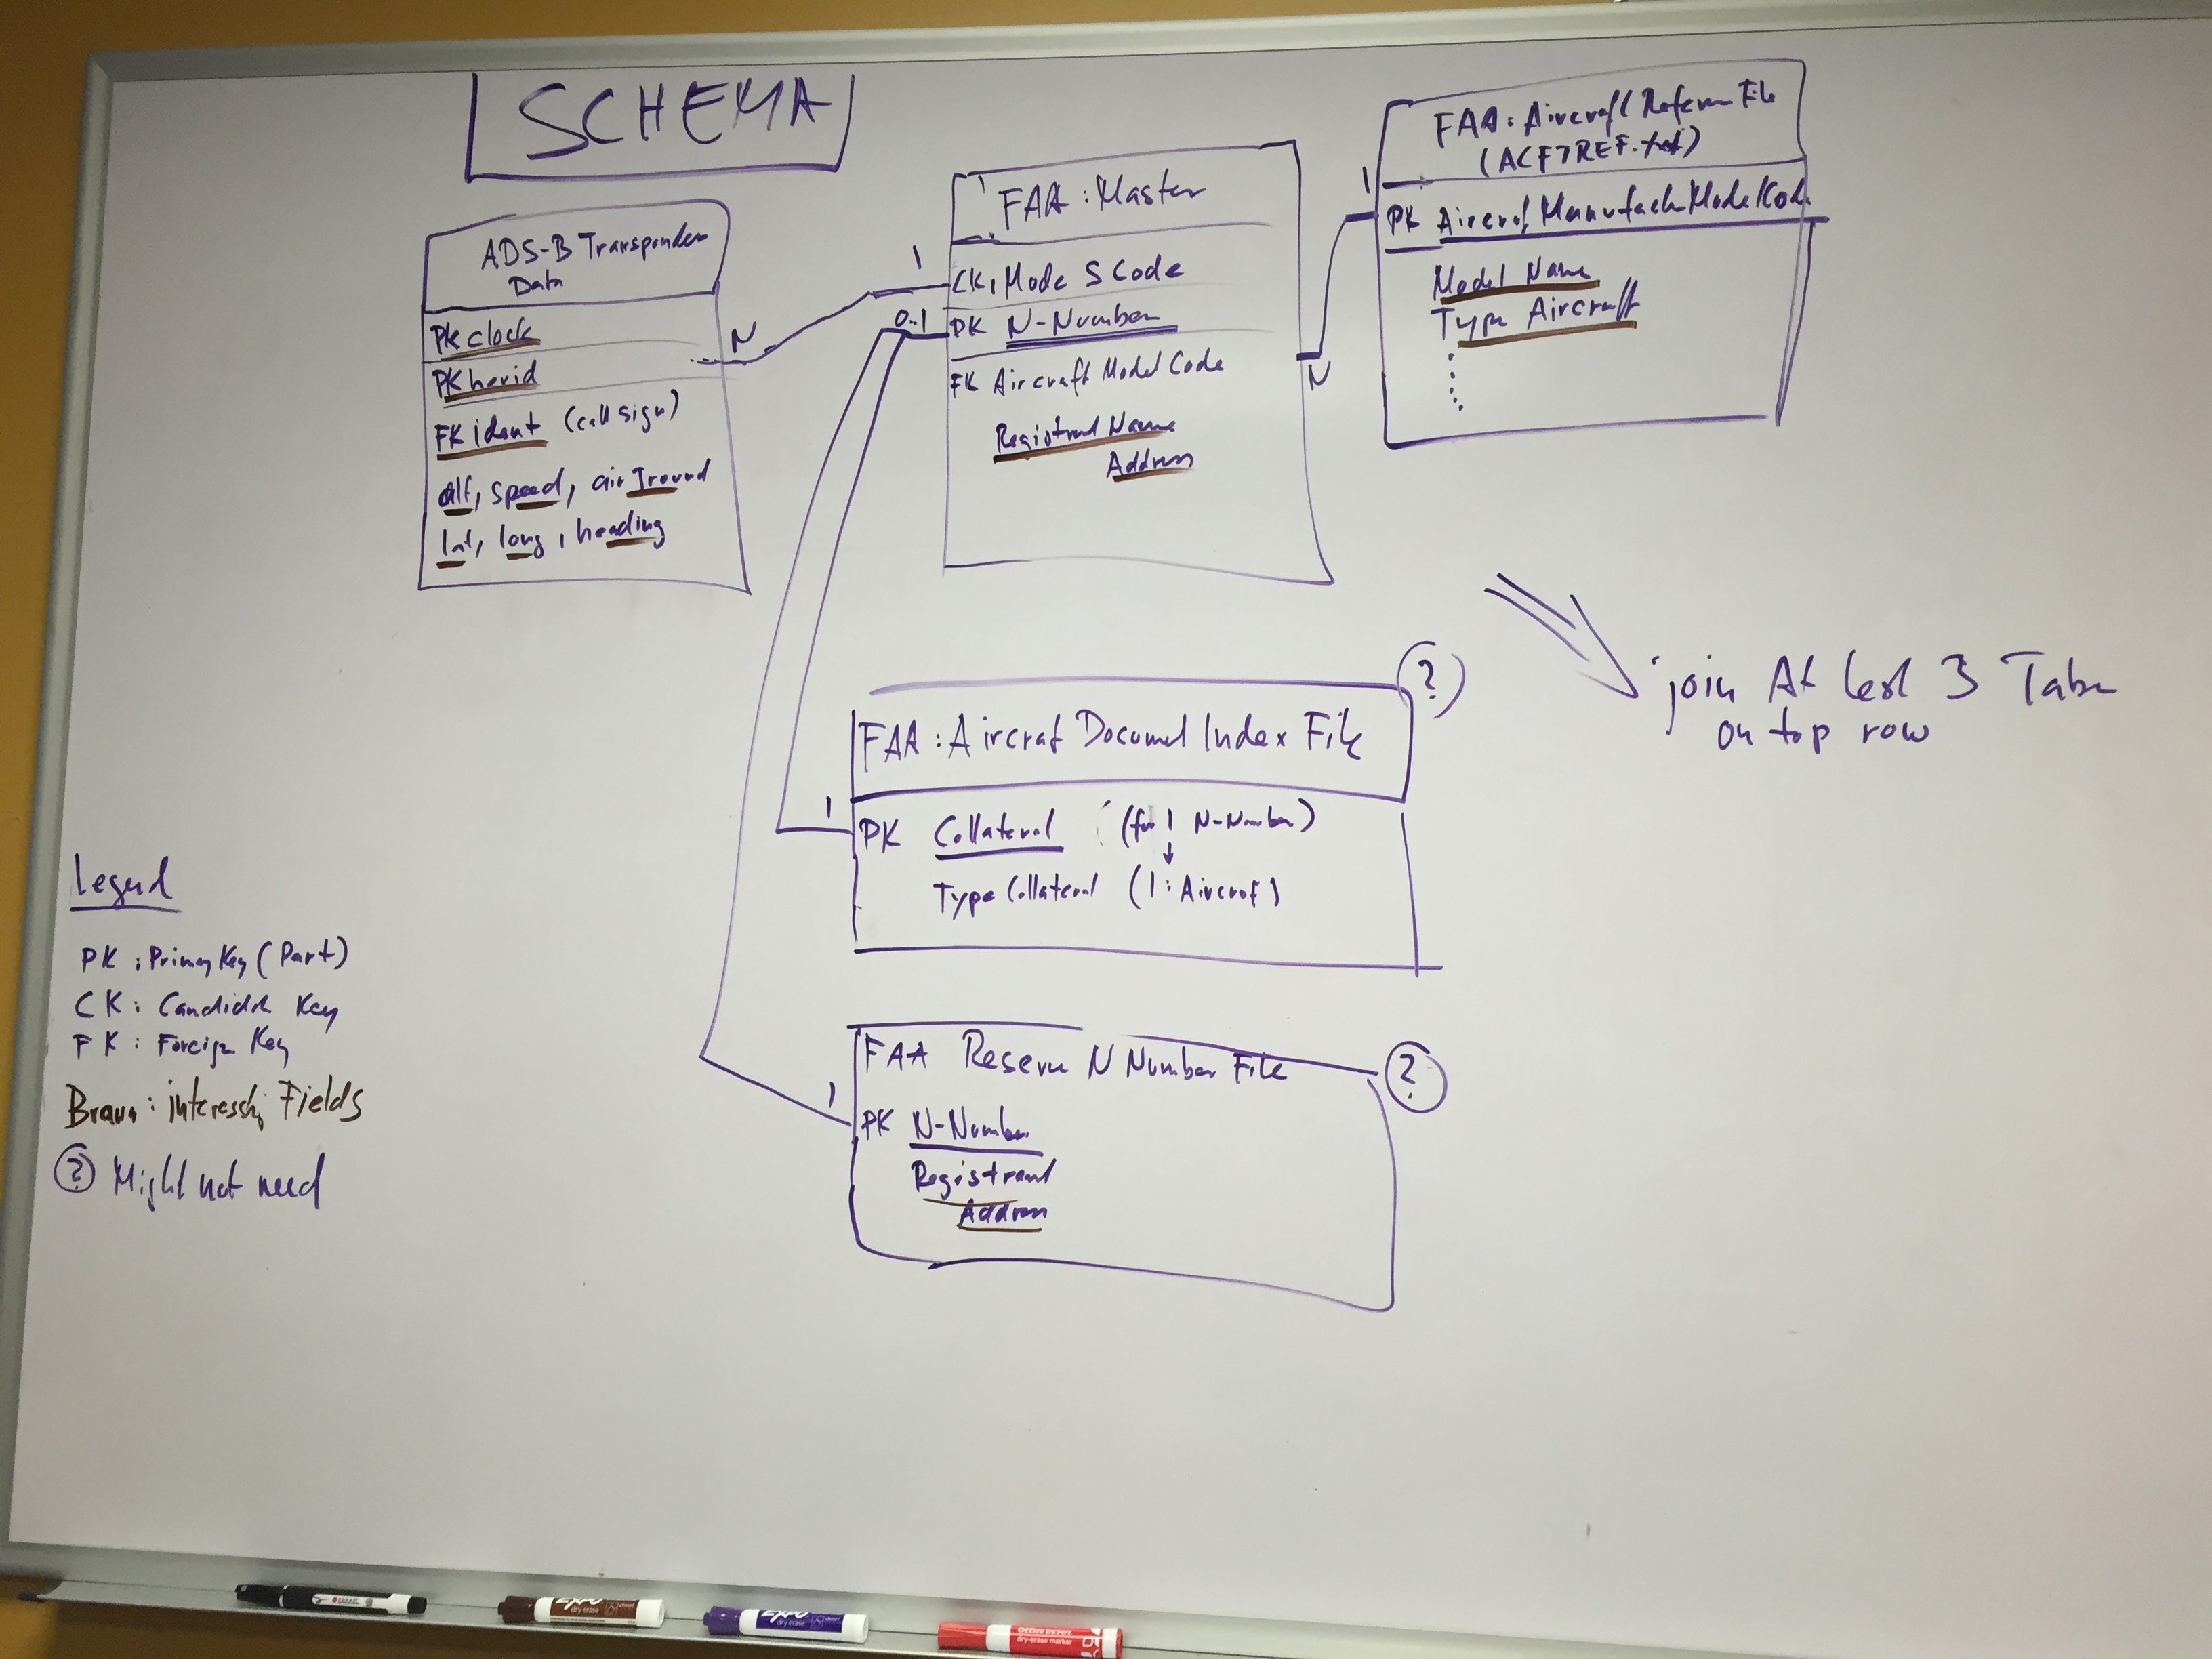 SCHEMA
ADS-B Transponder
Data
PK clock
PK hexid
FK ident (call sign)
alt, speed, air Ground
lat, long, heading
FAA: Master
CK, Mode S Code
PK N-Number
FK Aircraft Model Code
Registrant Name
Address
N
1
0..1
N
1
FAA: Aircraft Referen File
(ACFTREF.txt)
PK Aircraf Manufactu Model Cod.
Model Name
Type Aircraft
join At lest 3 Table
on top row
?
FAA: Aircraft Document Index File
1
PK Collateral (for 1 N-Number)
Type Collateral (1: Aircraft)
FAA Reserve N Number File
?
1
PK N-Number
Registrant
Address
Legend
PK: Primary Key (Part)
CK: Candidate Key
FK: Foreign Key
Braun: interesstig Fields
? Might not need
EXPO
dry erase
EXPO
dry erase
Office DEPOT
dry-erase marker